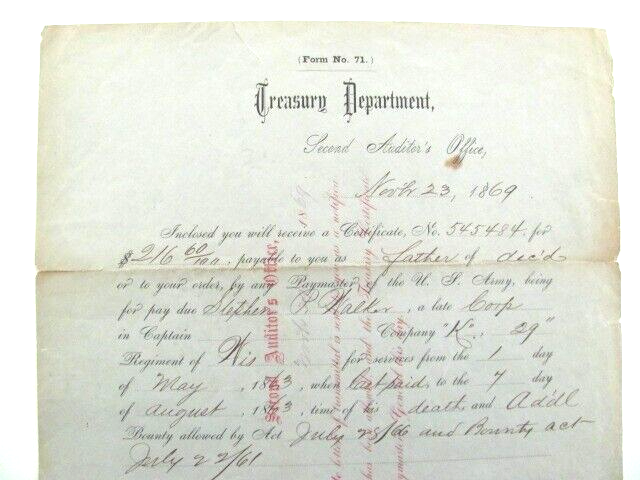 (Form No. 71.)
Treasury Department,
Second Auditor's Office,
Novbr 23, 1869
Inclosed you will receive a Certificate, No. 545484, for
$216 60/100, payable to you as father of dec'd
or to your order, by any Paymaster of the U. S. Army, being
for pay due Stephen P. Walker, a late Corp
in Captain Company "K", 29"
Regiment of Wis for services from the 1 day
of May, 1863, when last paid, to the 7 day
of August, 1863, time of his death, and Ad'dl
Bounty allowed by Act July 28/66 and Bounty act
July 22/61
Second Auditor's Office,
1869